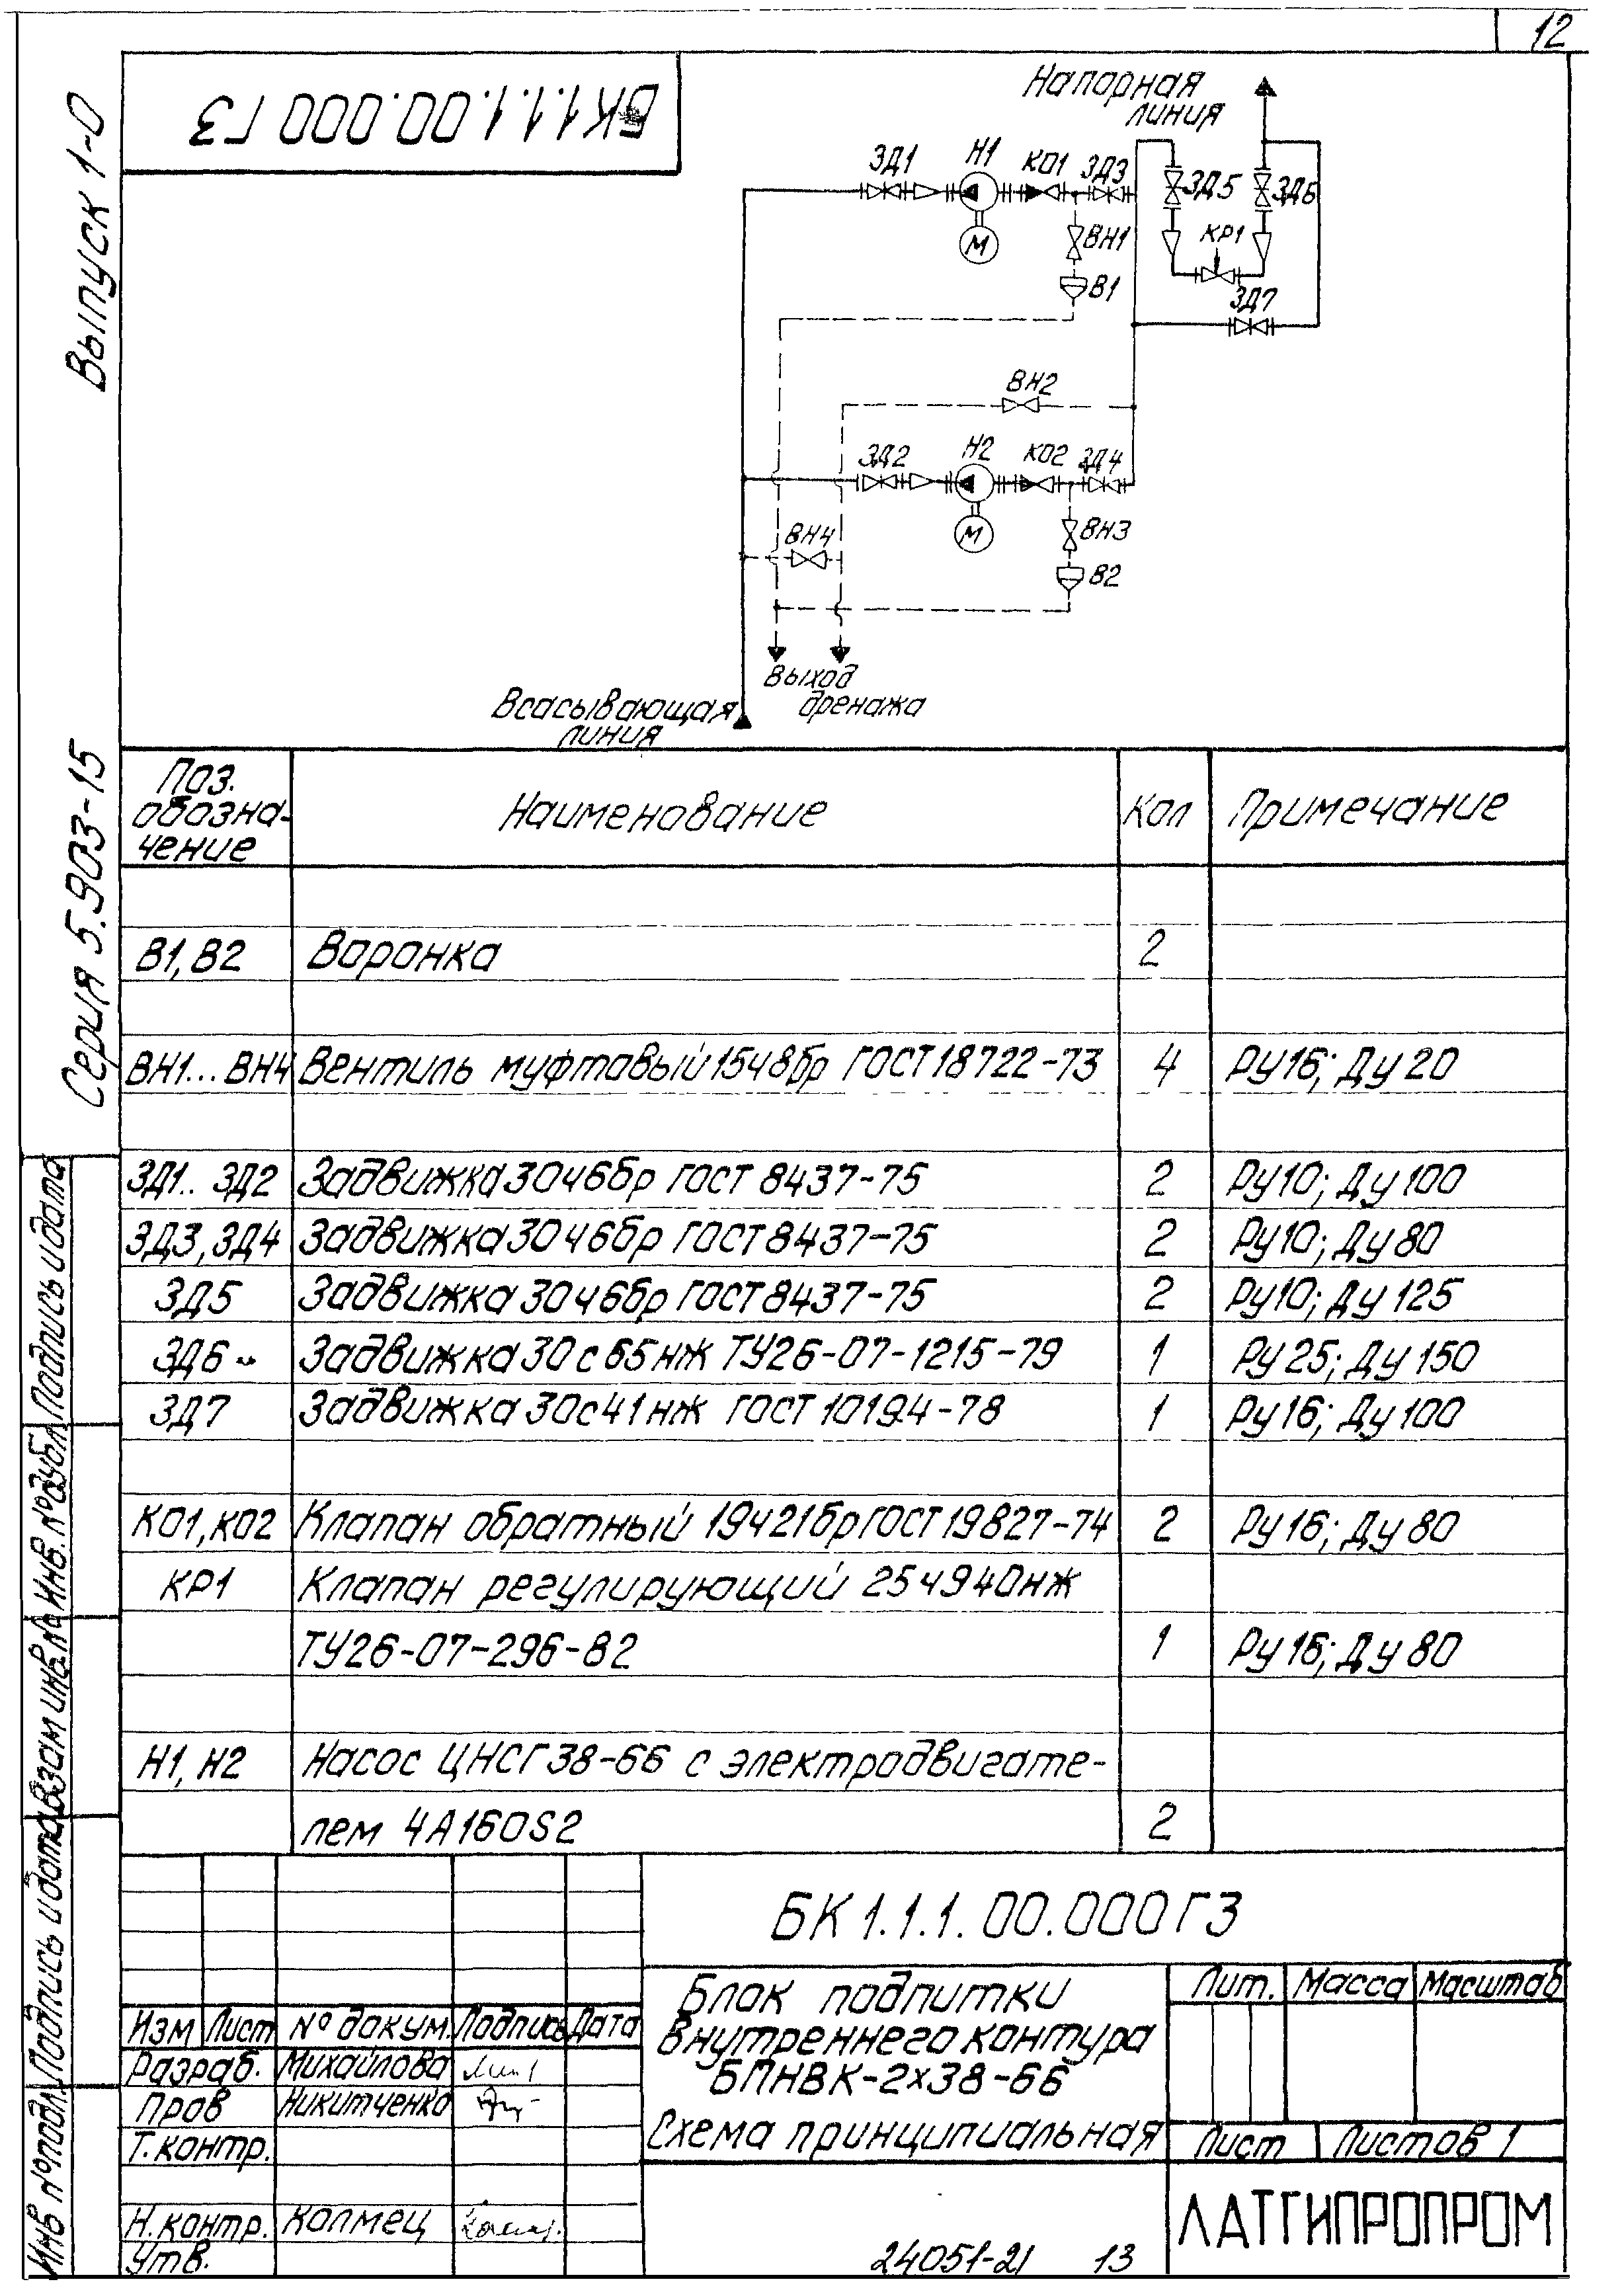 12
БК1.1.1.00.000 Г3
Выпуск 1-0
Серия 5.903-15
Напорная
линия
ЗД1
Н1
КО1
ЗД3
ЗД5
ЗД6
М
ВН1
КР1
В1
ЗД7
ВН2
ЗД2
Н2
КО2
ЗД4
М
ВН4
ВН3
В2
Выход
дренажа
Всасывающая
линия
Поз. обозна-чение Наименование Кол Примечание
В1, В2 Воронка 2
ВН1...ВН4 Вентиль муфтовый 15ч8бр ГОСТ 18722-73 4 Ру16; Ду 20
ЗД1..ЗД2 Задвижка 30ч6бр ГОСТ 8437-75 2 Ру10; Ду 100
ЗД3, ЗД4 Задвижка 30ч6бр ГОСТ 8437-75 2 Ру10; Ду 80
ЗД5 Задвижка 30ч6бр ГОСТ 8437-75 2 Ру10; Ду 125
ЗД6 Задвижка 30с65нж ТУ26-07-1215-79 1 Ру 25; Ду 150
ЗД7 Задвижка 30с41нж ГОСТ 10194-78 1 Ру 16; Ду 100
КО1, КО2 Клапан обратный 19ч21бр ГОСТ 19827-74 2 Ру 16; Ду 80
КР1 Клапан регулирующий 25ч940нж
ТУ26-07-296-82 1 Ру 16; Ду 80
Н1, Н2 Насос ЦНСГ38-66 с электродвигате-
лем 4А160S2 2
БК 1.1.1.00.000 Г3
Изм Лист № докум. Подпись Дата
Разраб. Михайлова
Пров Никитченко
Т. контр.
Н. контр. Колмец
Утв.
Блок подпитки
внутреннего контура
БПНВК-2х38-66
Схема принципиальная
Лит. Масса Масштаб
Лист Листов 1
ЛАТГИПРОПРОМ
24051-21 13
Подпись и дата
Инв. № дубл.
Взам инв. №
Подпись и дата
Инв № подл.